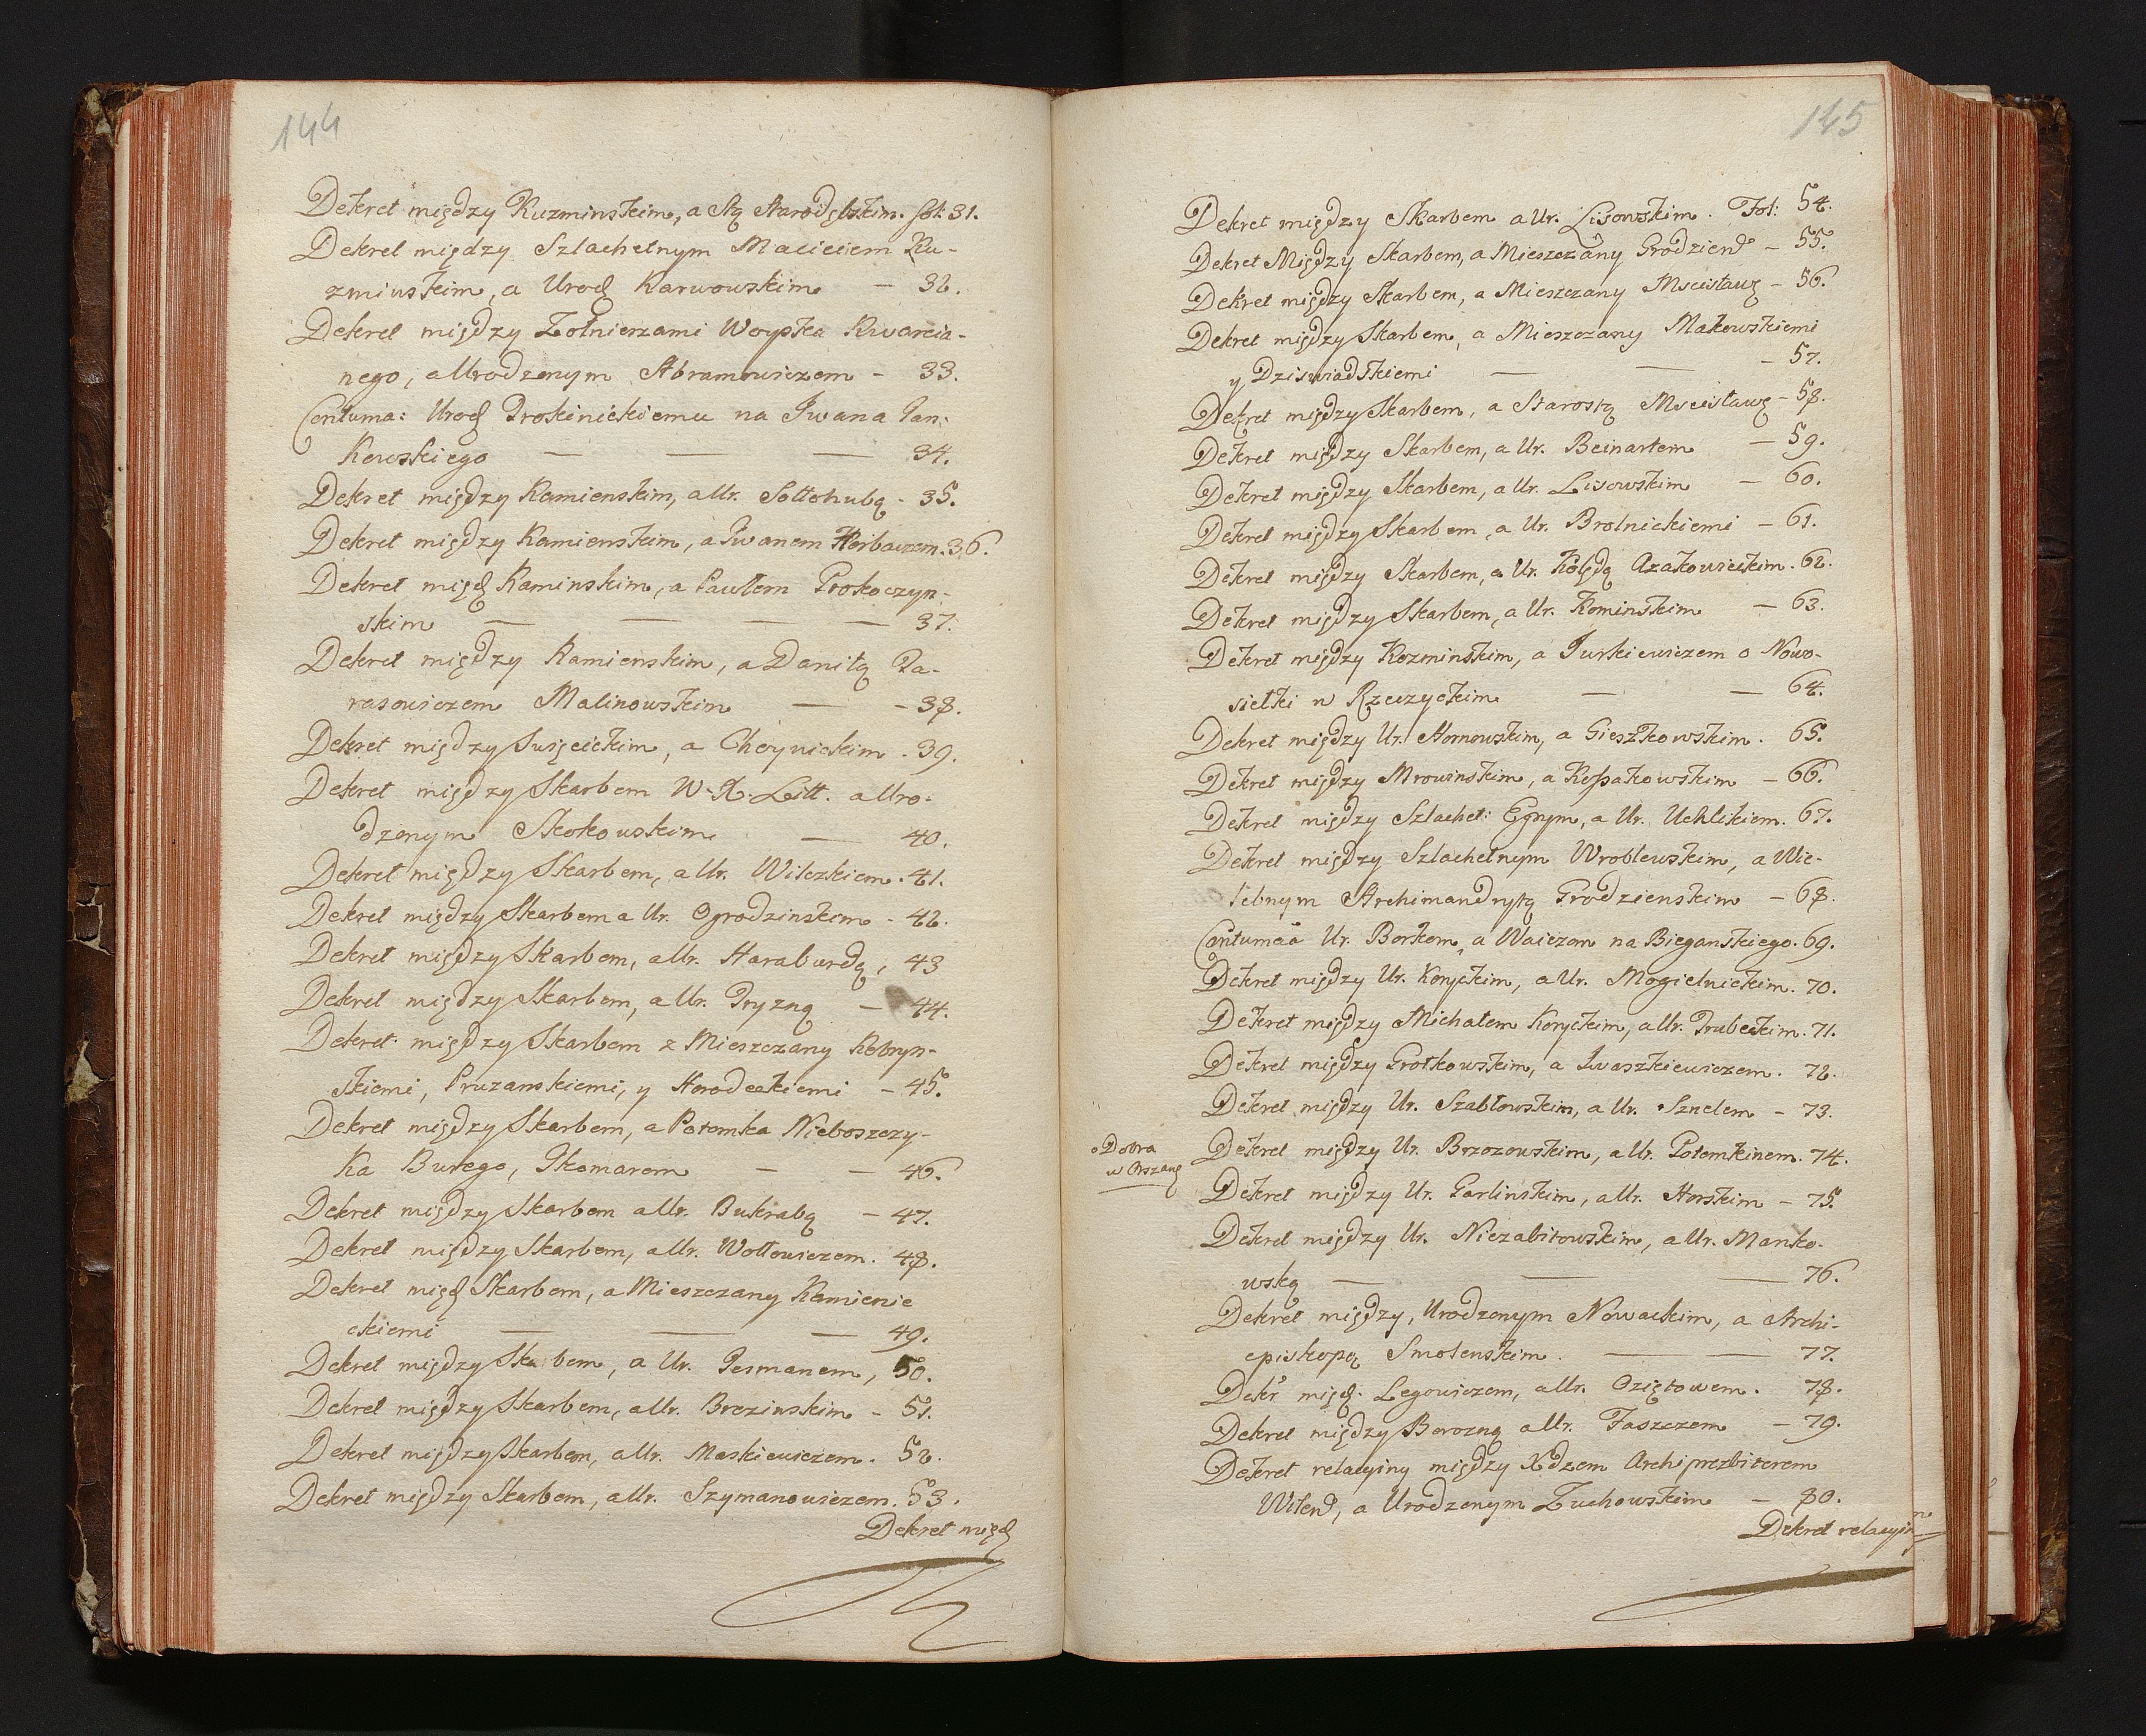 144
Dekret między Kuzminskim, a Stą Starodębskim. fol: 31.
Dekret między Szlachetnym Maciciem Ku-
zminskim, a Urod Karwowskim — 32.
Dekret między Żołnierzami Woyska Kwarcia-
nego, a Urodzonym Abramowiczem - 33.
Contuma: Urod Prokinickiemu na Jwana Pan-
kowskiego — — — 34.
Dekret między Kamienskim, a Ur. Sołłohubą - 35.
Dekret między Kamienskim, a Jwanem Horbaczem. 36.
Dekret międ Kaminskim, a Pawłem Prokoczyn-
skim — — — — 37.
Dekret między Kamienskim, a Daniłą Ta-
rasowiczem Malinowskim — - 38.
Dekret między Swięcickim, a Choynickim - 39.
Dekret między Skarbem W. X. Litt. a Uro-
dzonym Skokowskim — 40.
Dekret między Skarbem, a Ur. Wilczkiem. 41.
Dekret między Skarbem a Ur. Ogrodzinskim - 42.
Dekret między Skarbem, a Ur. Haraburdą, 43
Dekret między Skarbem, a Ur. Pryzną — 44.
Dekret między Skarbem z Mieszczany Kobryn-
skiemi, Pruzanskiemi, y Horodeckiemi - 45.
Dekret między Skarbem, a Potomka Nieboszczy-
ka Burego, Skomarom — — 46.
Dekret między Skarbem a Ur. Bukrabą — 47.
Dekret między Skarbem, a Ur. Wołłowiczem. 48.
Dekret międ Skarbem, a Mieszczany Kamienie
ckiemi — — — 49.
Dekret między Skarbem, a Ur. Pesmanem, 50.
Dekret między Skarbem, a Ur. Brezinskim - 51.
Dekret między Skarbem, a Ur. Maskiewiczem. 52.
Dekret między Skarbem, a Ur. Szymanowiczem. 53.
Dekret międ
145
Dekret między Skarbem a Ur. Lisowskim. Fol: 54.
Dekret Między Skarbem, a Mieszczany Grodzien - 55.
Dekret między Skarbem, a Mieszczany Mscisławs - 56.
Dekret między Skarbem, a Mieszczany Makowskiemi
y Dziswiadskiemi — — - 57.
Dekret między Skarbem, a Starostą Mscisławs - 58.
Dekret między Skarbem, a Ur. Beinartem — 59.
Dekret między Skarbem, a Ur. Lisowskim — 60.
Dekret między Skarbem, a Ur. Brolnickiemi - 61.
Dekret między Skarbem, a Ur. Kolędą Azakowickim. 62.
Dekret między Skarbem, a Ur. Kominskim — 63.
Dekret między Kozminskim, a Jurkiewiczem o Nowo-
siełki w Rzeczyckim — — 64.
Dekret między Ur. Hornowskim, a Gieszkowskim. 65.
Dekret między Mrowinskim, a Kossakowskim - 66.
Dekret między Szlachet: Egnym, a Ur. Uchlikiem. 67.
Dekret między Szlachetnym Wroblewskim, a Wie-
lebnym Archimandrytą Grodzienskim - 68.
Contumaa Ur. Borkom, a Waiczom na Bieganskiego. 69.
Dekret między Ur. Koryckim, a Ur. Mogielnickim. 70.
Dekret między Michałem Koryckim, a Ur. Trubeckim. 71.
Dekret między Grotkowskim, a Jwaszkiewiczem. 72.
Dekret między Ur. Szabłowskim, a Ur. Sznelem - 73.
o Dobra
w Orszans
Dekret między Ur. Brzozowskim, a Ur. Potemkinem. 74.
Dekret między Ur. Garlinskim, a Ur. Horskim - 75.
Dekret między Ur. Niezabitowskim, a Ur. Manko-
wską — — — 76.
Dekret między, Urodzonym Nowackim, a Archi-
episkopą Smolenskim. — — 77.
Dekr międ. Legowiczem, a Ur. Oziętowem. 78.
Dekret między Borozną a Ur. Faszczem — 79.
Dekret relacyiny między Xdzem Archiprezbiterem
Wilen, a Urodzonym Żuchowskim — 80.
Dekret relacyin